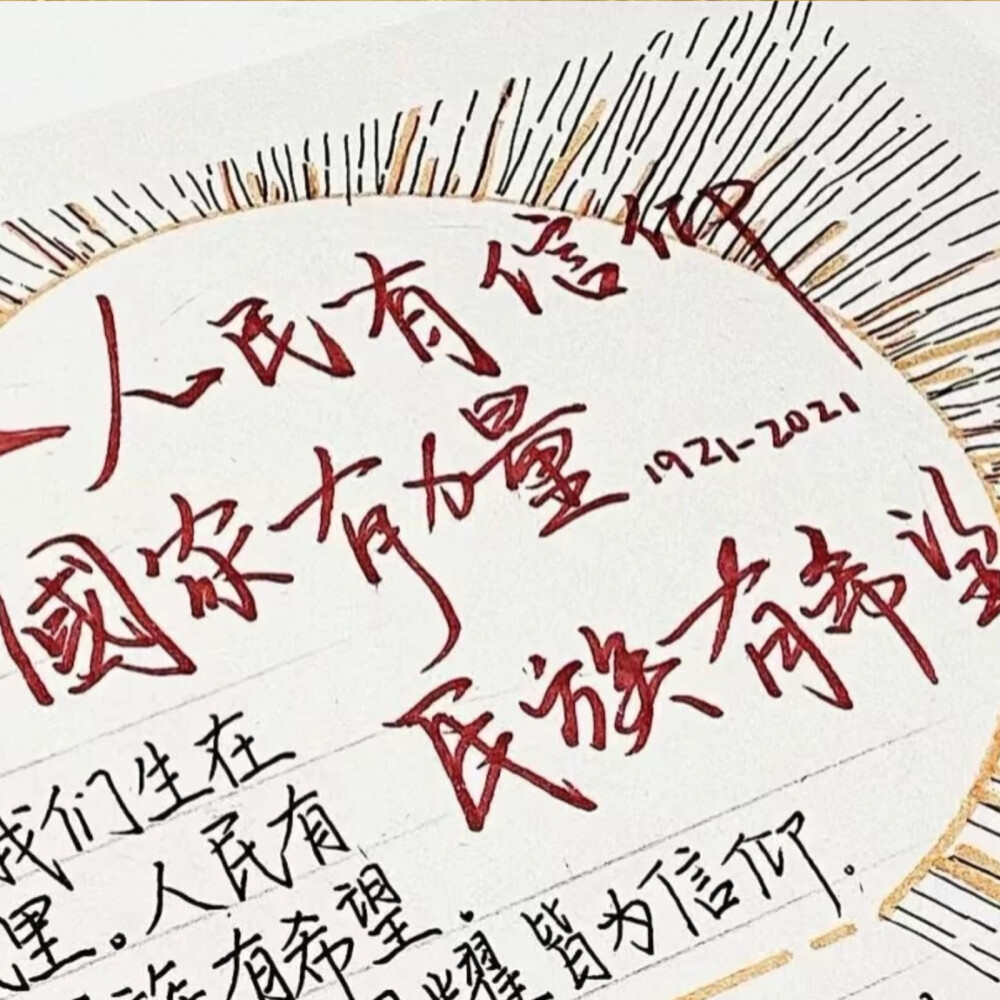 人民有信仰
國家有力量
1921-2021
民族有希望
我们生在
里。人民有
族有希望.
耀皆为信仰.